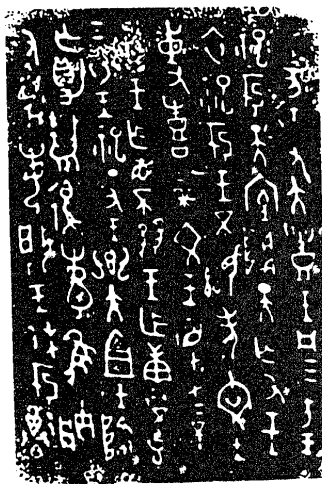 乙亥王又大豊王凡三方王
祀于天室降天亡又王
衣祀于王不顯考文王
事喜上帝文王才上不
顯王乍省不王乍庚不克
三衣王祀丁丑王鄉大宜王降
亡爵復唯朕
又王休于尊